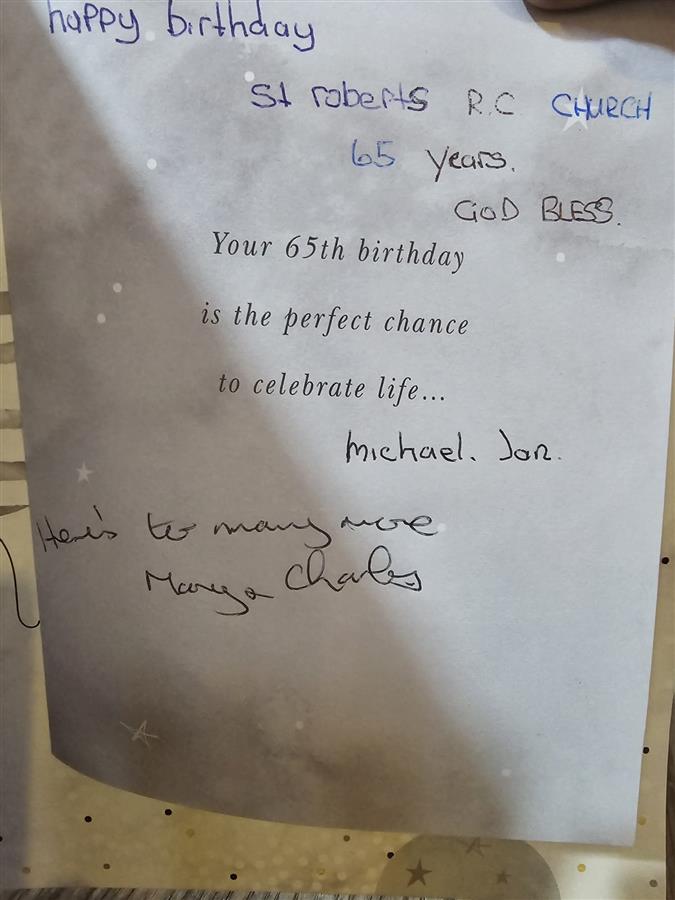 happy birthday
St roberts R.C CHURCH
65 years.
GOD BLESS.
Your 65th birthday
is the perfect chance
to celebrate life...
Michael. Jan.
Here's to many more
Mary & Charles